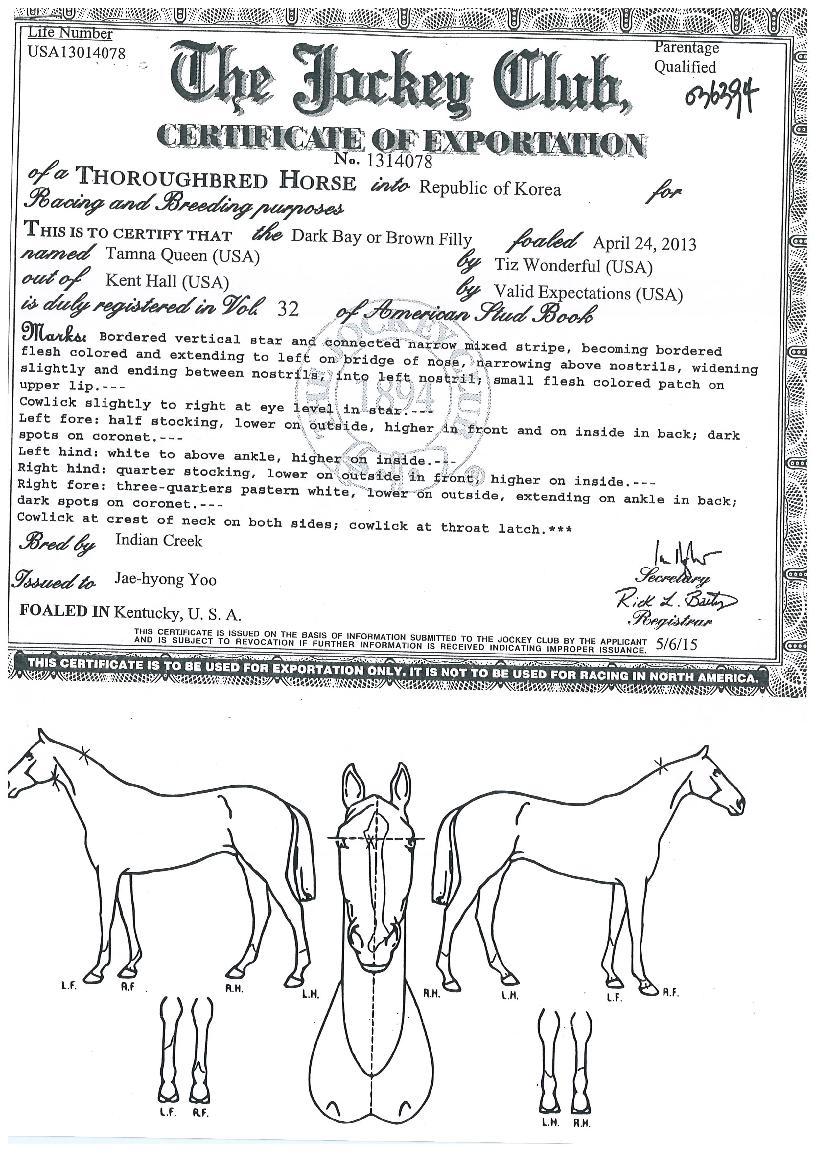 Life Number
USA13014078
Parentage
Qualified
036394
The Jockey Club,
CERTIFICATE OF EXPORTATION
No. 1314078
of a THOROUGHBRED HORSE into Republic of Korea for
Racing and Breeding purposes
THIS IS TO CERTIFY THAT the Dark Bay or Brown Filly foaled April 24, 2013
named Tamna Queen (USA) by Tiz Wonderful (USA)
out of Kent Hall (USA) by Valid Expectations (USA)
is duly registered in Vol. 32 of American Stud Book
Marks: Bordered vertical star and connected narrow mixed stripe, becoming bordered
flesh colored and extending to left on bridge of nose, narrowing above nostrils, widening
slightly and ending between nostrils; into left nostril; small flesh colored patch on
upper lip.---
Cowlick slightly to right at eye level in star.---
Left fore: half stocking, lower on outside, higher in front and on inside in back; dark
spots on coronet.---
Left hind: white to above ankle, higher on inside.---
Right hind: quarter stocking, lower on outside in front, higher on inside.---
Right fore: three-quarters pastern white, lower on outside, extending on ankle in back;
dark spots on coronet.---
Cowlick at crest of neck on both sides; cowlick at throat latch.***
THE JOCKEY CLUB
1894
Bred by Indian Creek
Secretary
Issued to Jae-hyong Yoo
Rick L. Bailey
Registrar
FOALED IN Kentucky, U. S. A.
THIS CERTIFICATE IS ISSUED ON THE BASIS OF INFORMATION SUBMITTED TO THE JOCKEY CLUB BY THE APPLICANT
AND IS SUBJECT TO REVOCATION IF FURTHER INFORMATION IS RECEIVED INDICATING IMPROPER ISSUANCE. 5/6/15
THIS CERTIFICATE IS TO BE USED FOR EXPORTATION ONLY. IT IS NOT TO BE USED FOR RACING IN NORTH AMERICA.
L.F. R.F. R.H. L.H. R.H. L.H. L.F. R.F.
L.F. R.F. L.H. R.H.